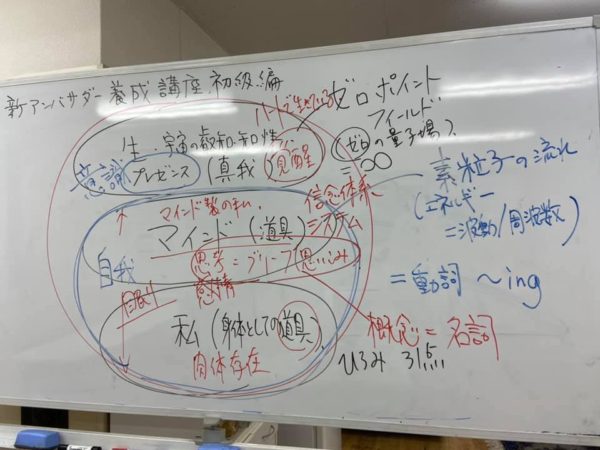 新アンバサダー養成講座初級編
ハートで生きている
ゼロポイント
フィールド
(ゼロの量子場)
=∞
生・宇宙の叡知・知性
意識 プレゼンス (真我) 覚醒
素粒子の流れ
(エネルギー
=波動/周波数)
=動詞 ~ing
信念体系
システム
マインド (道具)
自我
思考=ビリーフ(思い込み)
感情
私 (身体としての道具)
肉体存在
概念=名詞